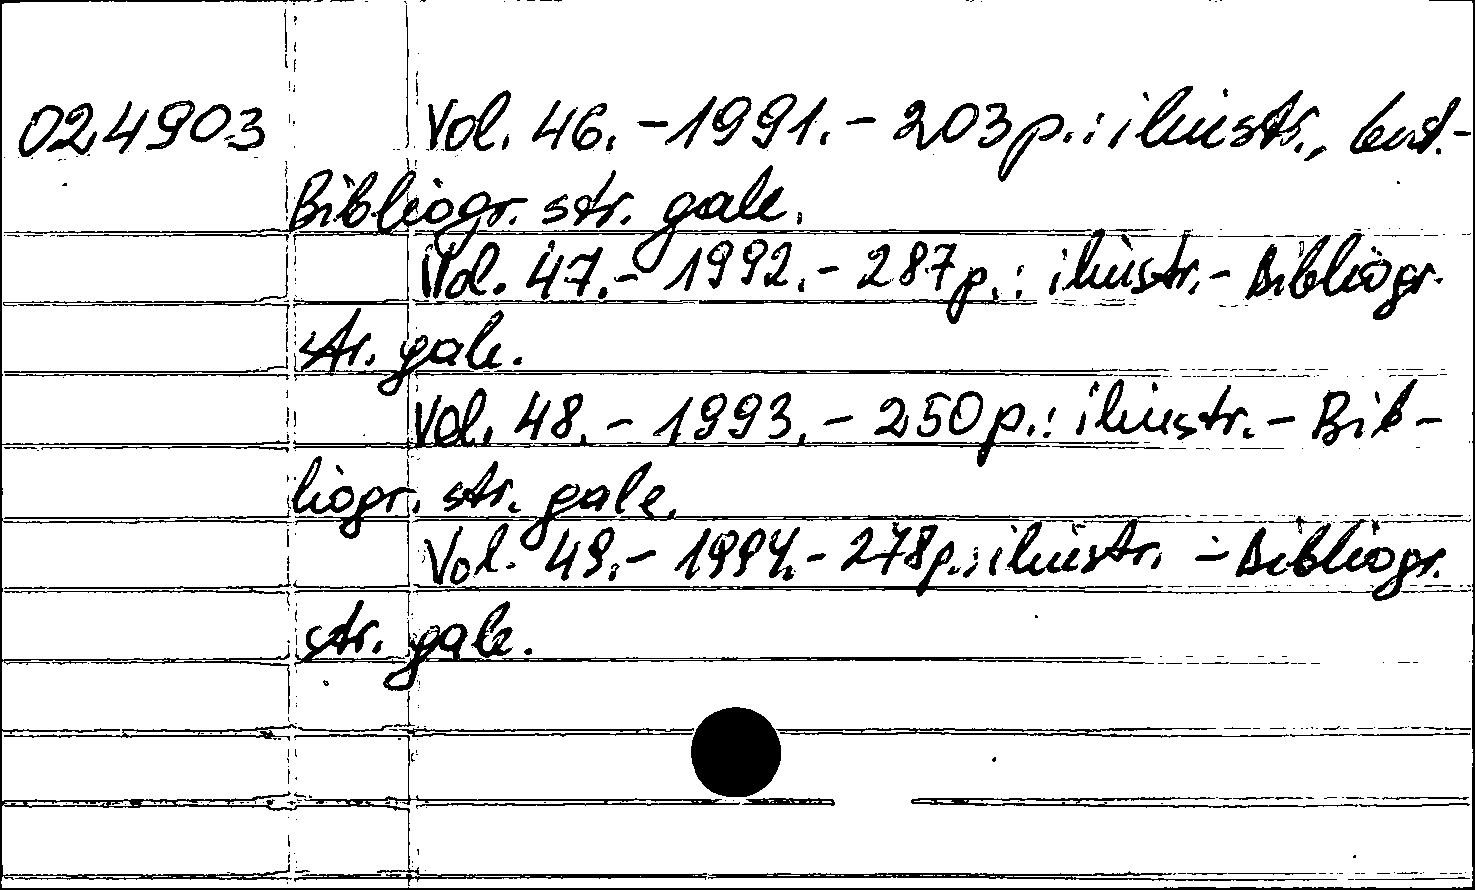 024903 Vol. 46. - 1991. - 203 p.: iliustr., lent. -
Bibliogr. str. gale.
Vol. 47. - 1992. - 287 p.: iliustr. - Bibliogr.
str. gale.
Vol. 48. - 1993. - 250 p.: iliustr. - Bib-
liogr. str. gale.
Vol. 49. - 1994. - 278 p.: iliustr. - Bibliogr.
str. gale.